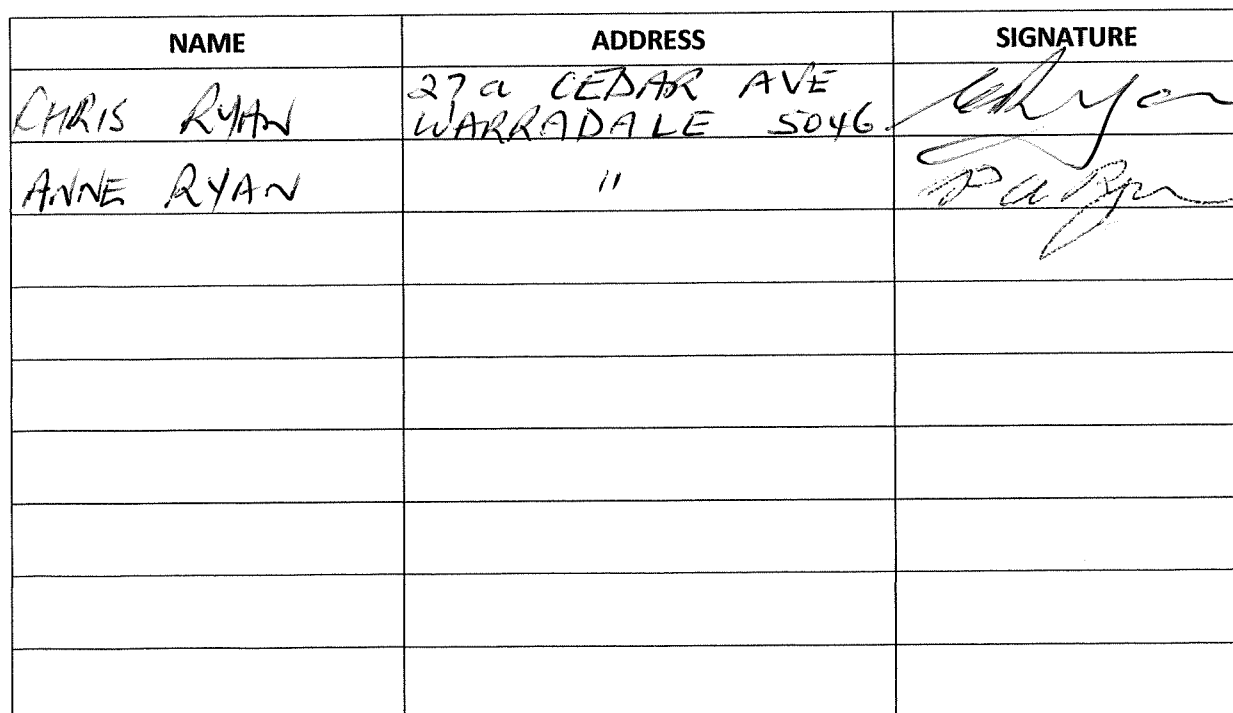 NAME ADDRESS SIGNATURE
CHRIS RYAN 27a CEDAR AVE
WARRADALE 5046
ANNE RYAN "